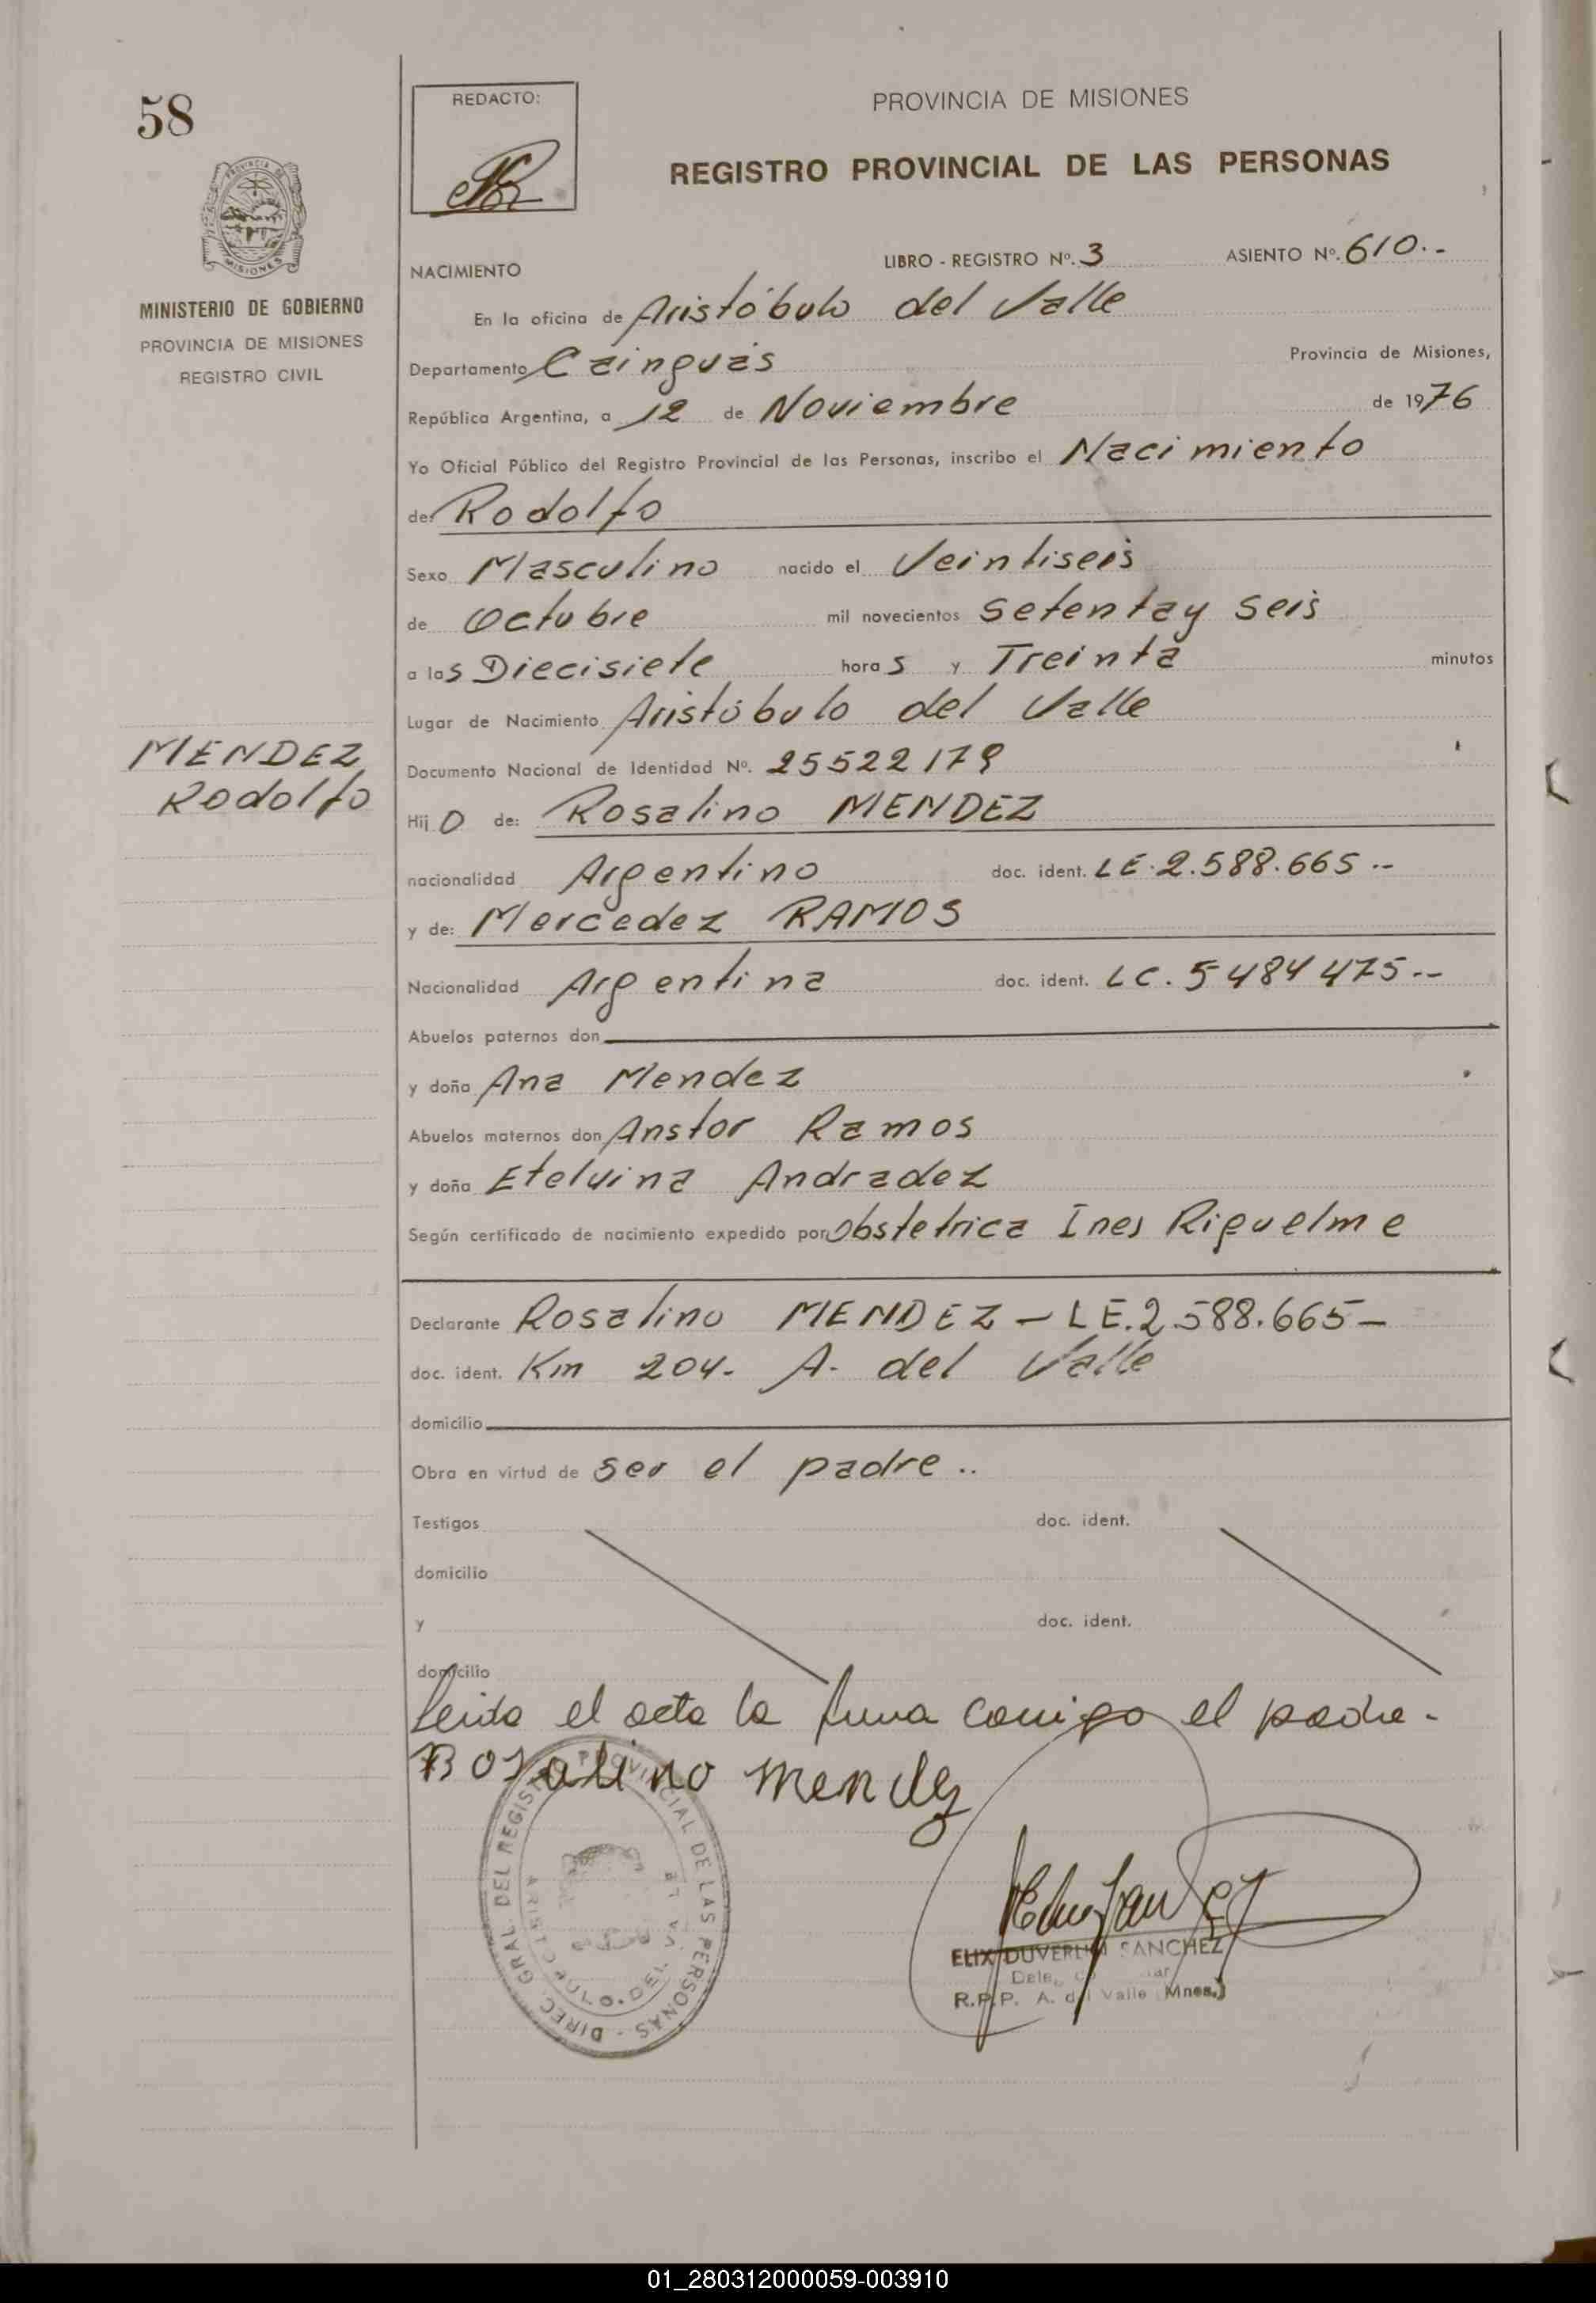 58
REDACTO:
PROVINCIA DE MISIONES
REGISTRO PROVINCIAL DE LAS PERSONAS
PROVINCIA DE
MISIONES
MINISTERIO DE GOBIERNO
PROVINCIA DE MISIONES
REGISTRO CIVIL
NACIMIENTO LIBRO - REGISTRO Nº. 3 ASIENTO Nº. 610.-
En la oficina de Aristóbulo del Valle
Departamento Cainguás Provincia de Misiones,
República Argentina, a 12 de Noviembre de 1976
Yo Oficial Público del Registro Provincial de las Personas, inscribo el Nacimiento
de: Rodolfo
Sexo Masculino nacido el Veintiseis
de Octubre mil novecientos setenta y seis
a las Diecisiete horas y Treinta minutos
Lugar de Nacimiento Aristóbulo del Valle
MENDEZ
Rodolfo
Documento Nacional de Identidad Nº. 25522179
Hijo de: Rosalino MENDEZ
nacionalidad Argentino doc. ident. LE.2.588.665--
y de: Mercedez RAMOS
Nacionalidad Argentina doc. ident. LC. 5484475--
Abuelos paternos don
y doña Ana Mendez
Abuelos maternos don Anstor Ramos
y doña Etelvina Andradez
Según certificado de nacimiento expedido por obstetrica Ines Riguelme
Declarante Rosalino MENDEZ - LE.2.588.665-
doc. ident. Km 204- A. del Valle
domicilio
Obra en virtud de ser el padre..
Testigos doc. ident.
domicilio
y doc. ident.
domicilio
Leida el acta la firma conmigo el padre-
Rosalino Mendez
DIREC. GRAL. DEL REGISTRO PROVINCIAL DE LAS PERSONAS -
ARISTOBULO DEL VALLE
ELIX DUVERLIN SANCHEZ
R.P.P. A. del Valle Mnes.
01_280312000059-003910